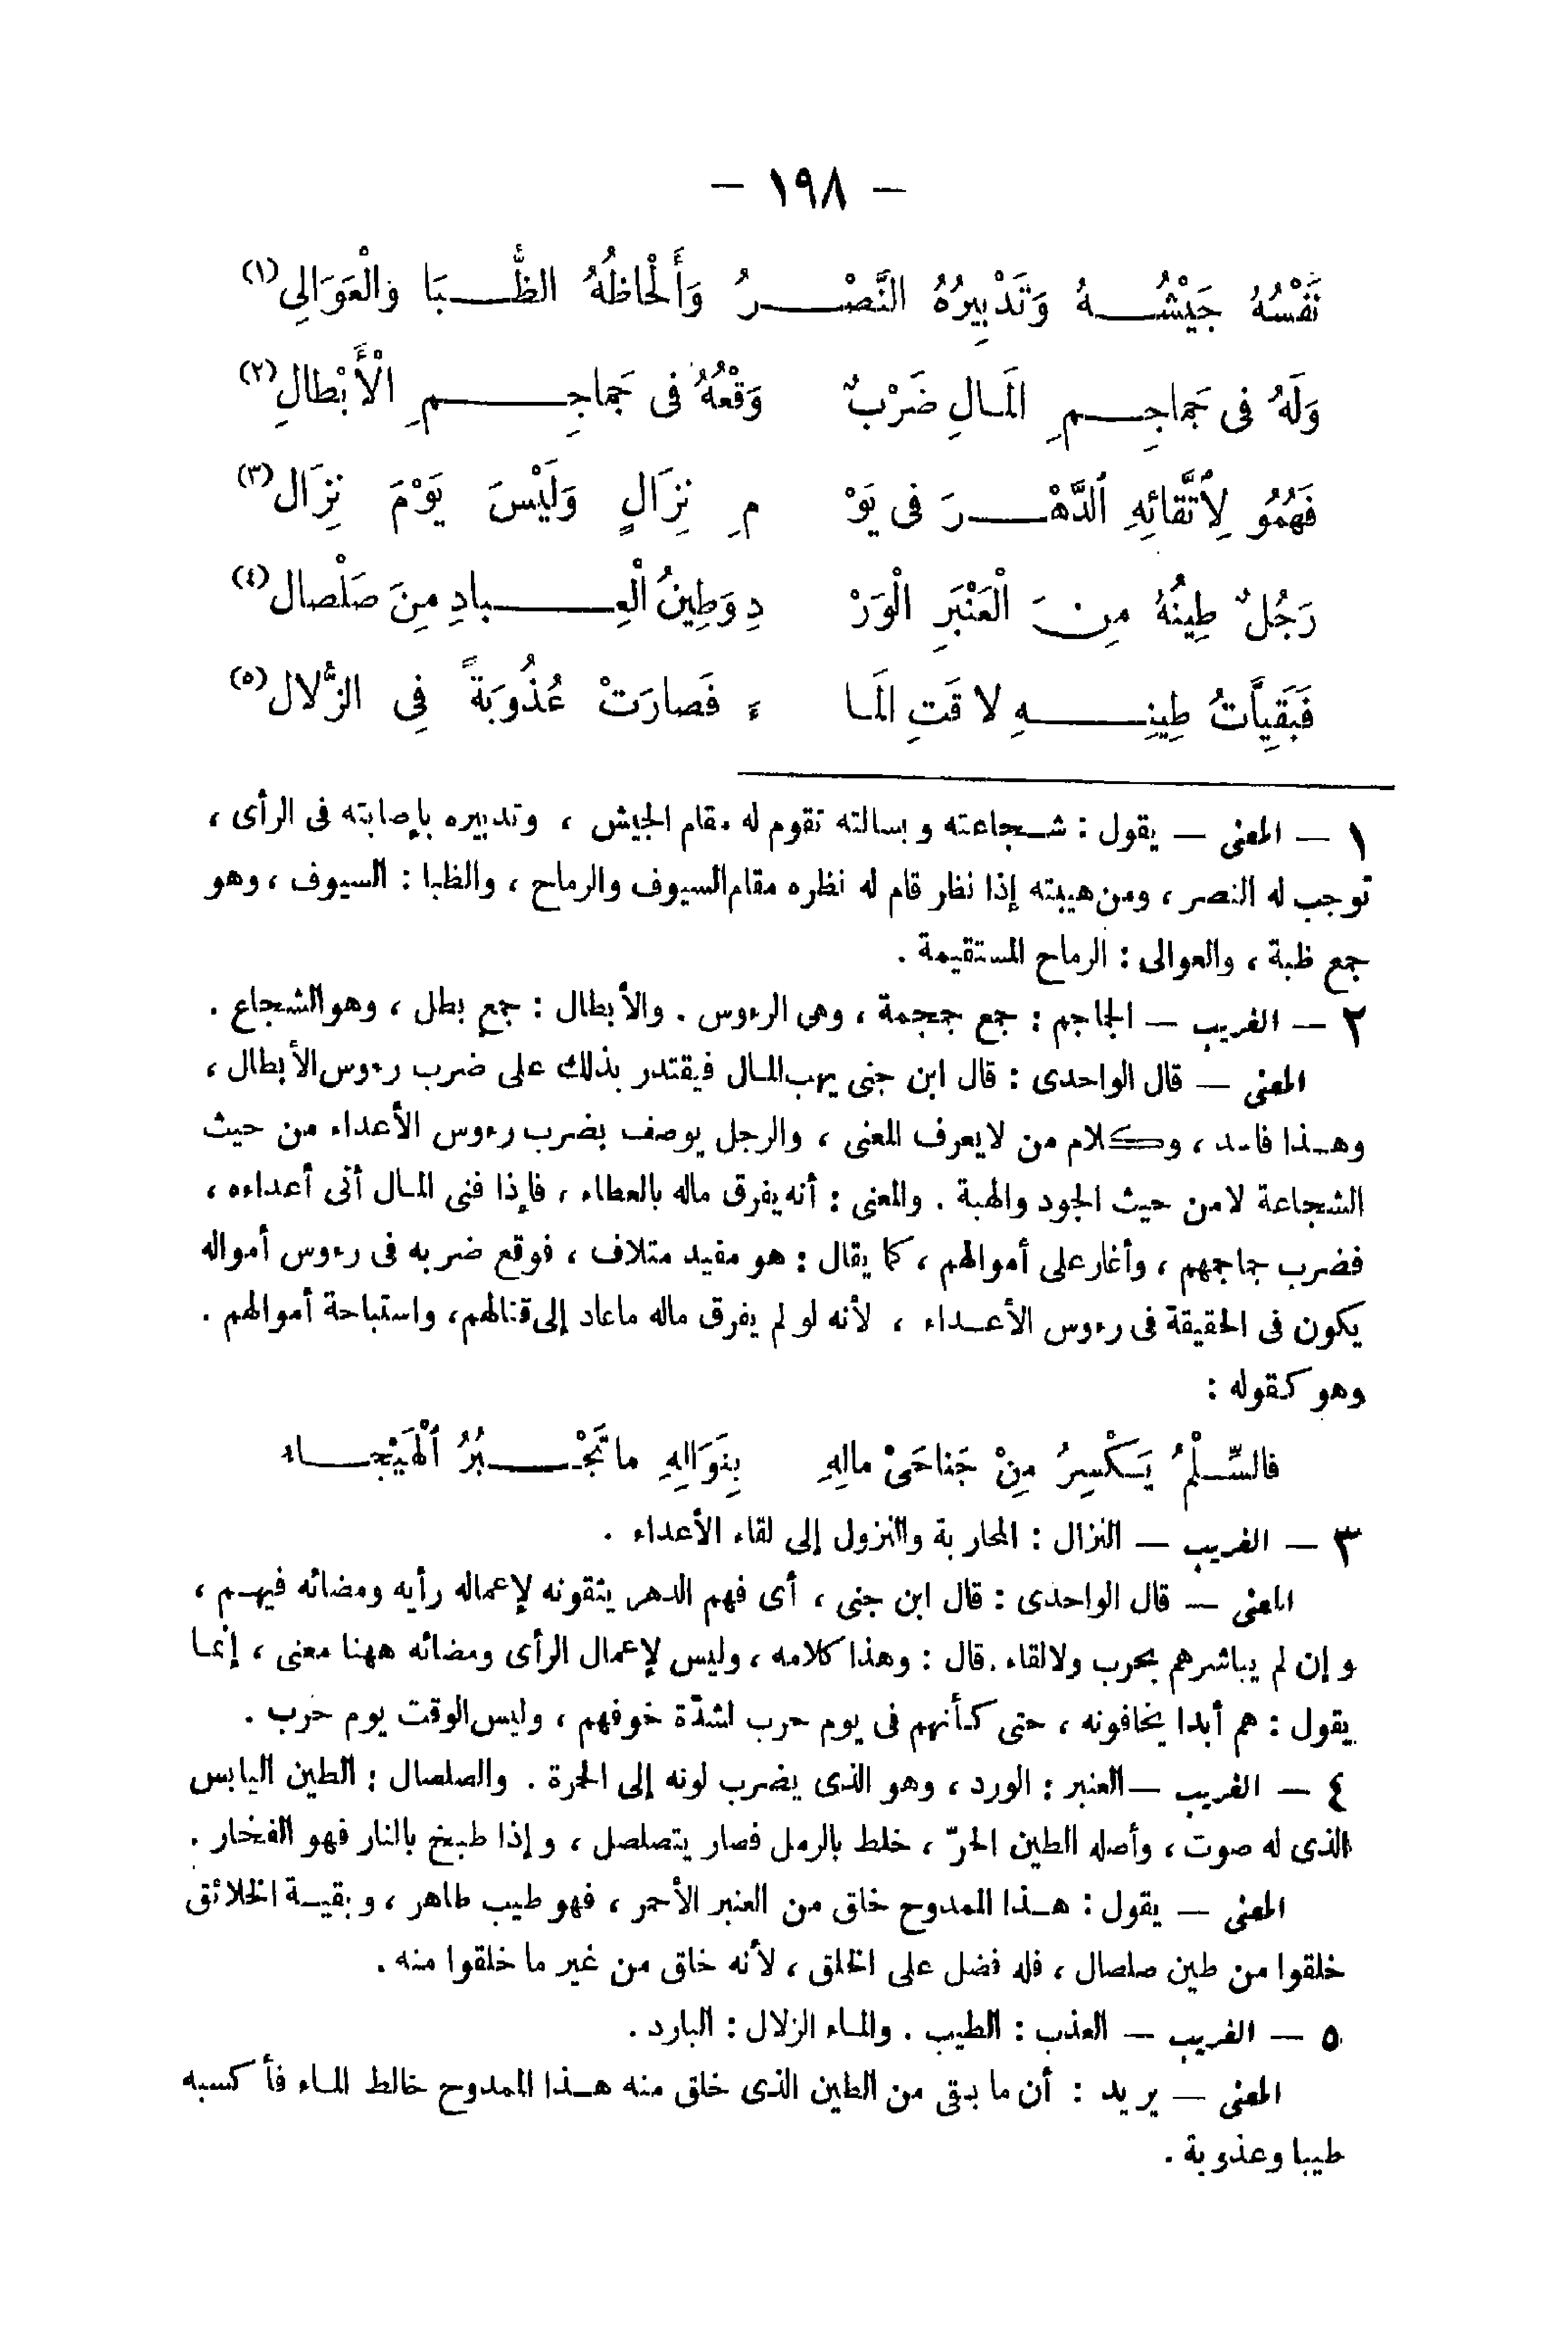 — ١٩٨ —
نَفْسُهُ جَيْشُـــهُ وَتَدْبِيرُهُ النَّصْـــرُ وَأَلْحاظُهُ الظُّـــبَا وَالْعَوَالِى(١)
وَلَهُ فى جَماجِـــمِ المَـالِ ضَرْبٌ وَقْعُهُ فى جَماجِـــمِ الْأَبْطالِ(٢)
فَهُمُو لِأتِّقائِهِ ٱلدَّهْـــرَ فى يَوْ مِ نِزَالٍ وَلَيْسَ يَوْمَ نِزَال(٣)
رَجُلٌ طِينُهُ مِنَ الْعَنْبَرِ الْوَرْ دِ وَطِينُ الْعِـــبادِ مِنَ صَلْصال(٤)
فَبَقِيَّاتُ طِينِـــهِ لاقَتِ المَـا ءَ فَصارَتْ عُذُوبَةً فِى الزُّلال(٥)
١ — المعنى — يقول : شـجاعته وبسالته تقوم له مقام الجيش ، وتدبيره بإصابته فى الرأى ،
توجب له النصر ، ومن هيبته إذا نظر قام له نظره مقام السيوف والرماح ، والظبا : السيوف ، وهو
جمع ظبة ، والعوالى : الرماح المستقيمة .
٢ — الغريب — الجماجم : جمع جمجمة ، وهى الرءوس . والأبطال : جمع بطل ، وهو الشجاع .
المعنى — قال الواحدى : قال ابن جنى يهب المـال فيقتدر بذلك على ضرب رءوس الأبطال ،
وهـذا فاسد ، وكلام من لايعرف المعنى ، والرجل يوصف بضرب رءوس الأعداء من حيث
الشجاعة لا من حيث الجود والهبة . والمعنى : أنه يفرق ماله بالعطاء ، فإذا فنى المـال أتى أعداءه ،
فضرب جماجمهم ، وأغار على أموالهم ، كما يقال : هو مفيد متلاف ، فوقع ضربه فى رءوس أمواله
يكون فى الحقيقة فى رءوس الأعـداء ، لأنه لو لم يفرق ماله ماعاد إلى قتالهم، واستباحة أموالهم .
وهو كقوله :
فالسِّـلْمُ يَكْسِرُ مِنْ جَناحَىْ مالِهِ بِنَوَالِهِ ما تَجْـــبُرُ ٱلْهَيْجـــاء
٣ — الغريب — النزال : المحاربة والنزول إلى لقاء الأعداء .
المعنى — قال الواحدى : قال ابن جنى ، أى فهم الدهر يتقونه لإعماله رأيه ومضائه فيهـم ،
وإن لم يباشرهم بحرب ولالقاء . قال : وهذا كلامه ، وليس لإعمال الرأى ومضائه ههنا معنى ، إنمـا
يقول : هم أبدا يخافونه ، حتى كأنهم فى يوم حرب لشدّة خوفهم ، وليس الوقت يوم حرب .
٤ — الغريب — العنبر : الورد ، وهو الذى يضرب لونه إلى الحمرة . والصلصال : الطين اليابس
الذى له صوت ، وأصله الطين الحرّ ، خلط بالرمل فصار يتصلصل ، وإذا طبخ بالنار فهو الفخار .
المعنى — يقول : هـذا الممدوح خلق من العنبر الأحمر ، فهو طيب طاهر ، وبقيـة الخلائق
خلقوا من طين صلصال ، فله فضل على الخلق ، لأنه خلق من غير ما خلقوا منه .
٥ — الغريب — العذب : الطيب . والمـاء الزلال : البارد .
المعنى — يريد : أن ما بقى من الطين الذى خلق منه هـذا الممدوح خالط المـاء فأكسبه
طيبا وعذوبة .